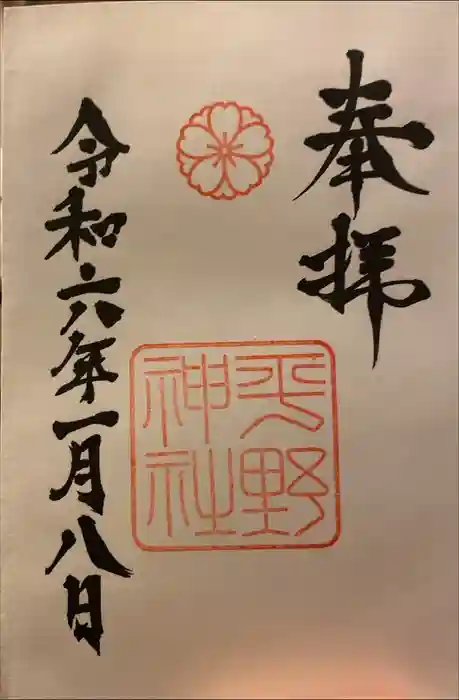 奉拝
平野
神社
令和六年一月八日